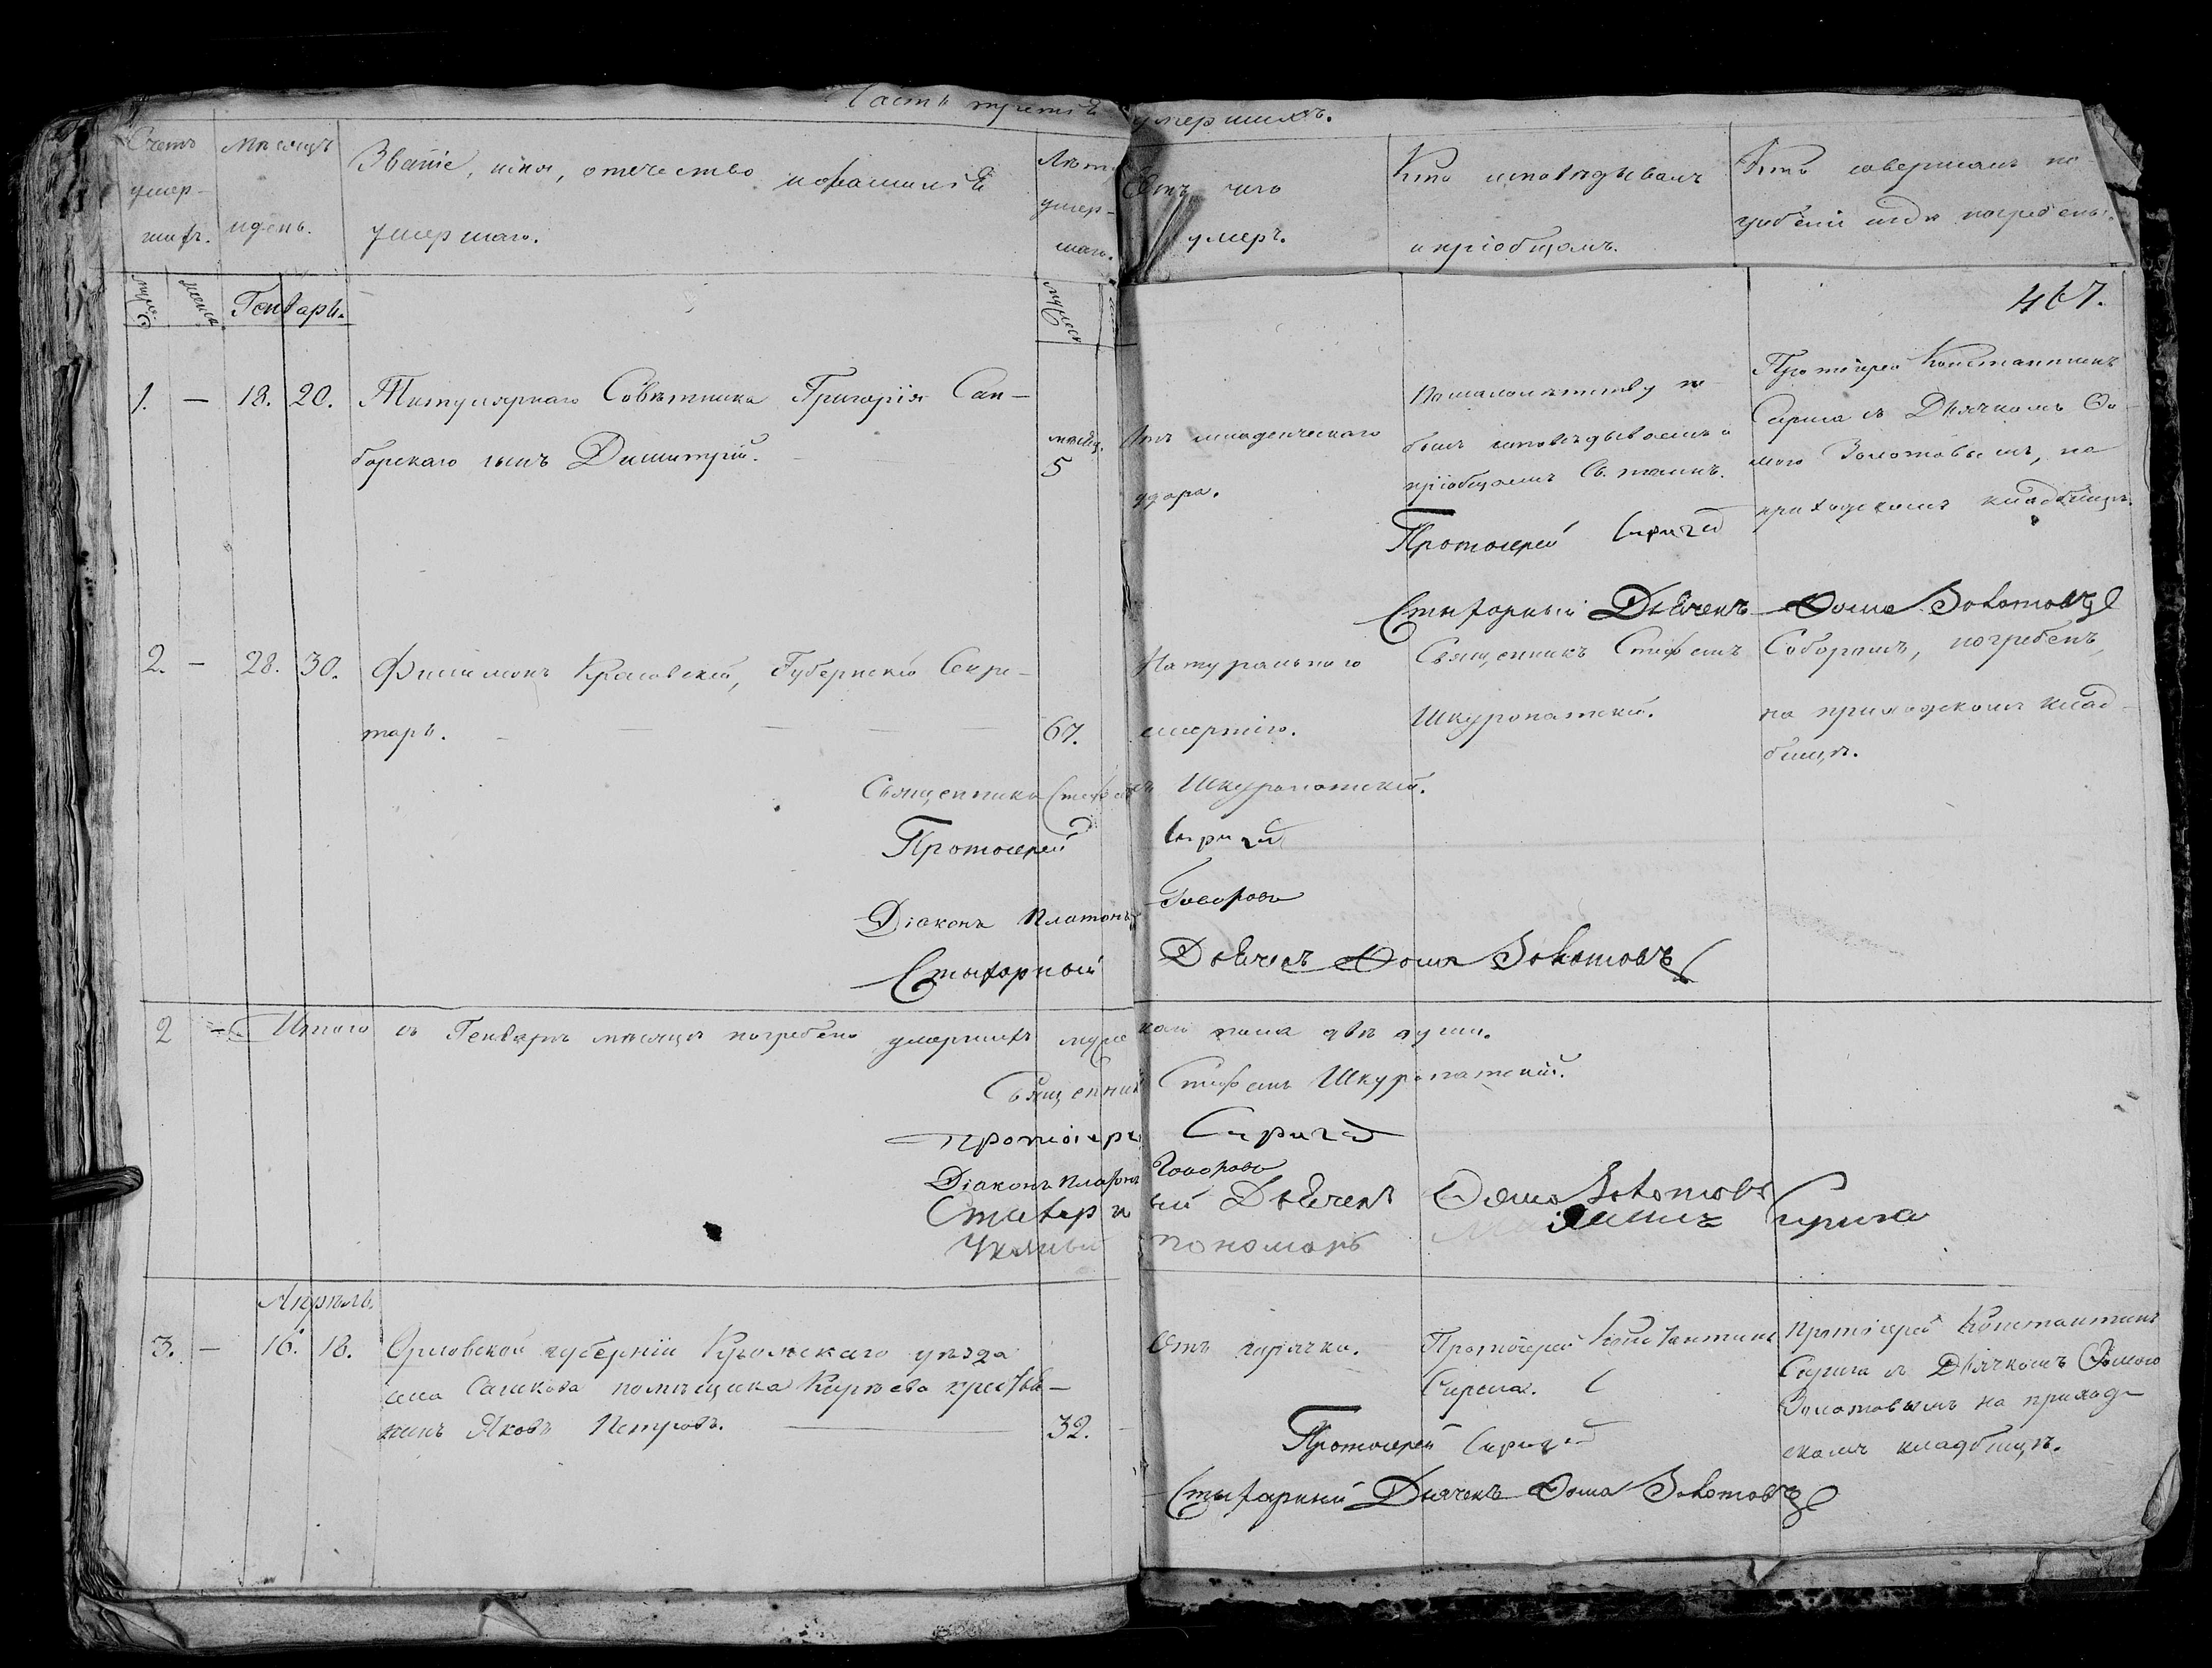 Часть третія
умершихъ.
Счетъ
умер-
шихъ.
Мѣсяцъ
и день.
Званіе, имя, отечество и фамилія
умершаго.
Лѣта
умер-
шаго.
Отъ чего
умеръ.
Кто исповѣдывалъ
и пріобщалъ.
Кто совершалъ по-
гребеніе и гдѣ погребены.
муж.
женск.
Генварь.
мужеск
467.
1. — 18. 20. Титулярнаго Совѣтника Григорія Сам-
борскаго сынъ Димитрій.
мѣсяц.
5
Отъ младенческаго
удара.
По малолѣтству не
былъ исповѣдываемъ и
пріобщаемъ Св. таинъ.
Протоіерей Константинъ
Сирига съ Дьячкомъ Ѳо-
мою Золотовымъ, на
приходскомъ кладбищѣ.
Протоіерей Сирига
Стихарный Дьячекъ Ѳома Золотовъ
2. — 28. 30. Филимонъ Красовскій, Губернскій Секре-
таръ. — — — — — 67.
Натуральною
смертію.
Священникъ Стефанъ
Шкуропатскій.
Соборомъ, погребенъ
на приходскомъ клад-
бищѣ.
Священникъ Стефанъ Шкуропатскій.
Протоіерей Сирига
Діаконъ Платонъ Говоровъ
Стихарный Дьячекъ Ѳома Золотовъ
2 — Итого въ Генварѣ мѣсяцѣ погребено умершихъ муже
скаго пола двѣ души.
Священникъ Стефанъ Шкуропатскій.
Протоіерей Сирига
Діаконъ Платонъ Говоровъ
Стихарный Дьячекъ Ѳома Золотовъ
пономарь Сирига
Апрѣль.
3. — 16. 18. Орловской губерніи Кромскаго уѣзда
села помѣщика Кирѣева крестья-
нинъ Яковъ Петровъ. — 32.
Отъ горячки.
Протоіерей Константинъ
Сирига.
Протоіерей Константинъ
Сирига съ Дьячкомъ Ѳомою
Золотовымъ на приход-
скомъ кладбищѣ.
Протоіерей Сирига
Стихарный Дьячекъ Ѳома Золотовъ